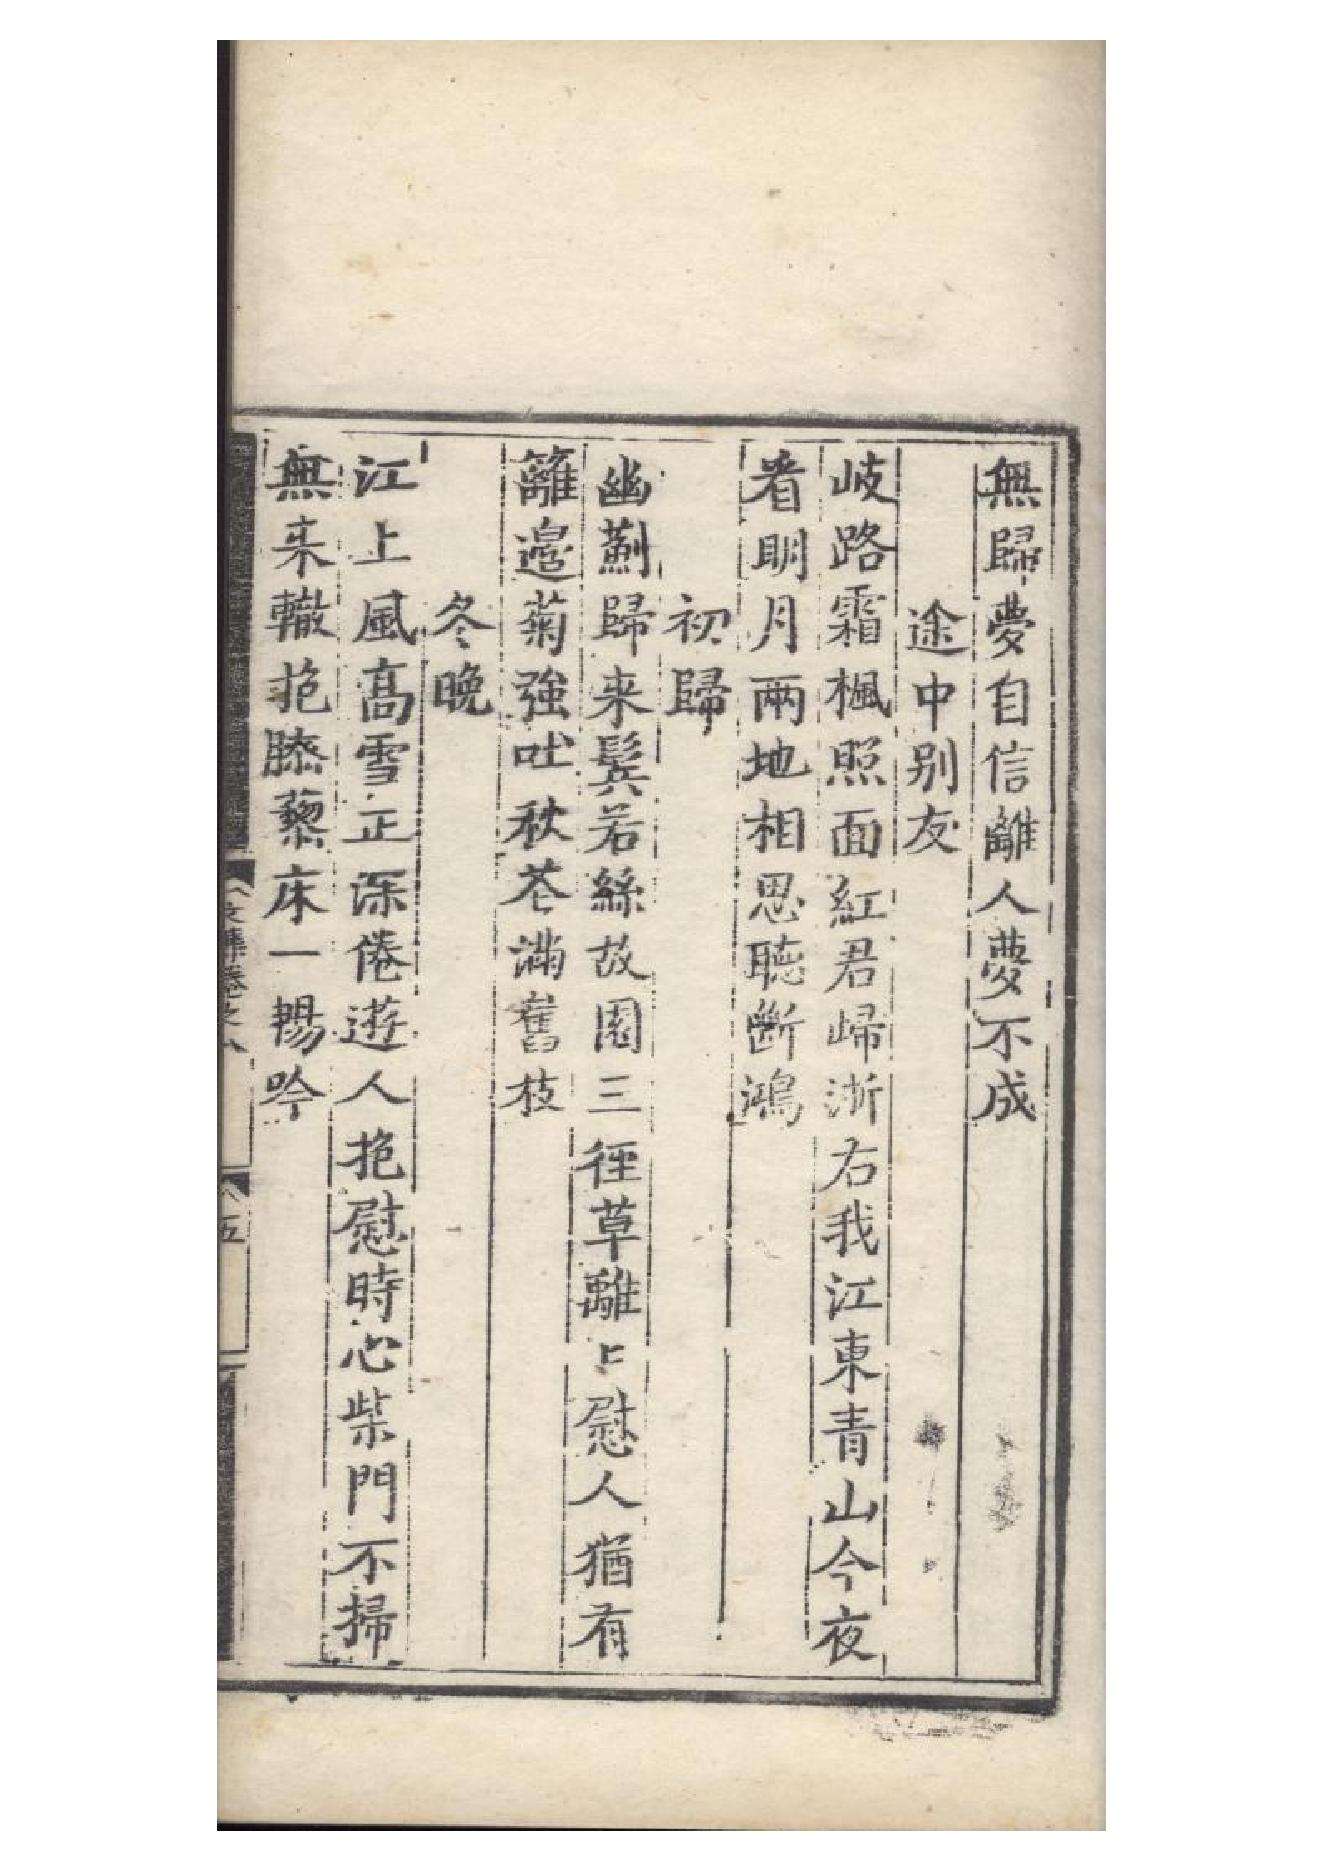 無歸夢自信離人夢不成
途中别友
岐路霜楓照面紅君歸浙右我江東青山今夜
看明月兩地相思聽斷鴻
初歸
幽薊歸来鬂若絲故園三徑草離上慰人猶有
籬邉菊強吐秋芲滿舊枝
冬晚
江上風高雪正深倦遊人抱慰時心柴門不掃
無来轍抱膝藜床一觴吟
五